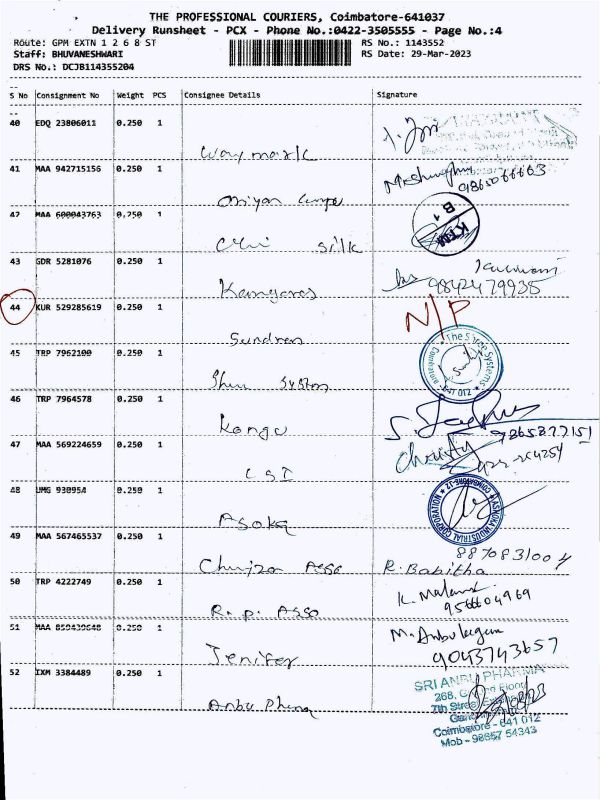 THE PROFESSIONAL COURIERS, Coimbatore-641037
Delivery Runsheet - PCX - Phone No.:0422-3505555 - Page No.:4
Route: GPM EXTN 1 2 6 8 ST
RS No.: 1143552
Staff: BHUVANESHWARI
RS Date: 29-Mar-2023
DRS No.: DCJB114355204
S No Consignment No Weight PCS Consignee Details Signature
40 EDQ 23806011 0.250 1
Waymark
41 MAA 942715156 0.250 1
9865066663
42 MAA 600043763 0.250 1
Silk
KTM
B 1
43 GDR 5281076 0.250 1
Kangaros
9842479935
44 KUR 529285619 0.250 1
Sundren
N/P
45 TRP 7962100 0.250 1
System
The Shree Systems
Coimbatore - 641 012
46 TRP 7964578 0.250 1
Kangu
9865877151
47 MAA 569224659 0.250 1
LSI
Christy
48 UMG 930954 0.250 1
Asoka
ASHOKA INDUSTRIAL CORPORATION
COIMBATORE-12
49 MAA 567465537 0.250 1
8870831004
Asso
R. Babitha
50 TRP 4222749 0.250 1
R.P. Asso
K. Malar
9566604969
51 MAA 859439648 0.250 1
Jenifer
M. Anbulagan
9043743657
52 IXM 3384489 0.250 1
Anbu Pharma
SRI ANBU PHARMA
268, G
7th Street
Coimbatore - 641 012
Mob - 98657 54343